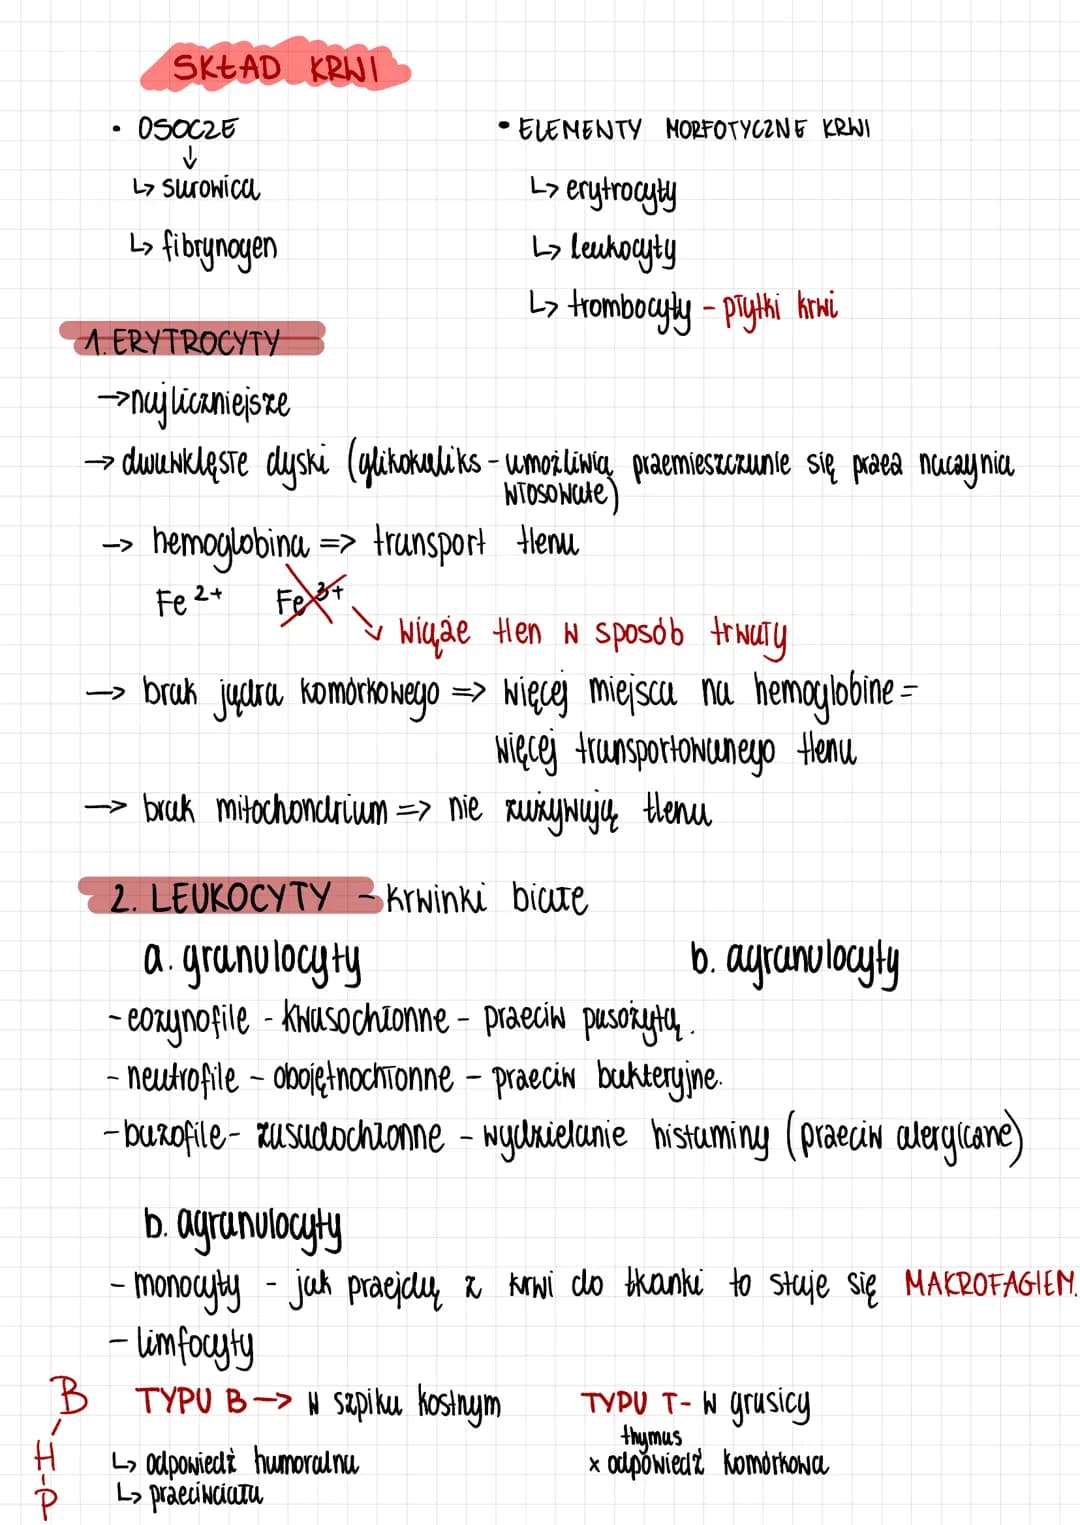 SKŁAD KRWI
• OSOCZE
↓
↳ surowica
↳ fibrynogen
• ELEMENTY MORFOTYCZNE KRWI
↳ erytrocyty
↳ leukocyty
↳ trombocyty - płytki krwi
1. ERYTROCYTY
→ najliczniejsze
→ dwuwklęsłe dyski (glikokaliks - umożliwia przemieszczanie się przez naczynia
włosowate)
→ hemoglobina => transport tlenu
Fe 2+ Fe 3+
↘ wiąże tlen w sposób trwały
→ brak jądra komórkowego => więcej miejsca na hemoglobine =
więcej transportowanego tlenu
→ brak mitochondrium => nie zużywują tlenu
2. LEUKOCYTY - krwinki białe
a. granulocyty b. agranulocyty
- eozynofile - kwasochłonne - przeciw pasożytą.
- neutrofile - obojętnochłonne - przeciw bakteryjne.
- bazofile - zasadochłonne - wydzielanie histaminy (przeciw alergiczne)
b. agranulocyty
- monocyty - jak przejdą z krwi do tkanki to staje się MAKROFAGIEM.
- limfocyty
B
H
P
TYPU B → w szpiku kostnym
↳ odpowiedź humoralna
↳ przeciwciała
TYPU T - w grasicy
thymus
x odpowiedź komórkowa